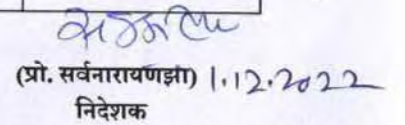 (प्रो. सर्वनारायणझा) 1.12.2022
निदेशक